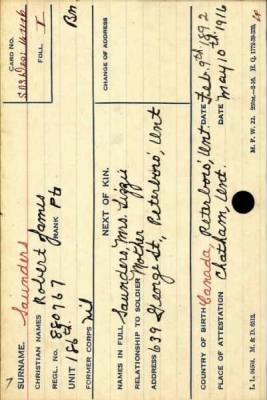 SURNAME. Saunders
CARD NO.
CHRISTIAN NAMES Robert James
FOLL. I
REGL. No. 880767 RANK Pte
UNIT 186th Bn
FORMER CORPS Nil
NEXT OF KIN.
CHANGE OF ADDRESS
NAMES IN FULL Saunders, Mrs. Lizzie
RELATIONSHIP TO SOLDIER Mother
ADDRESS 639 George St., Peterboro, Ont
COUNTRY OF BIRTH Canada, Peterboro, Ont. DATE Feb. 9th 1892
PLACE OF ATTESTATION Chatham, Ont. DATE May 10th 1916
M. F. W. 22.